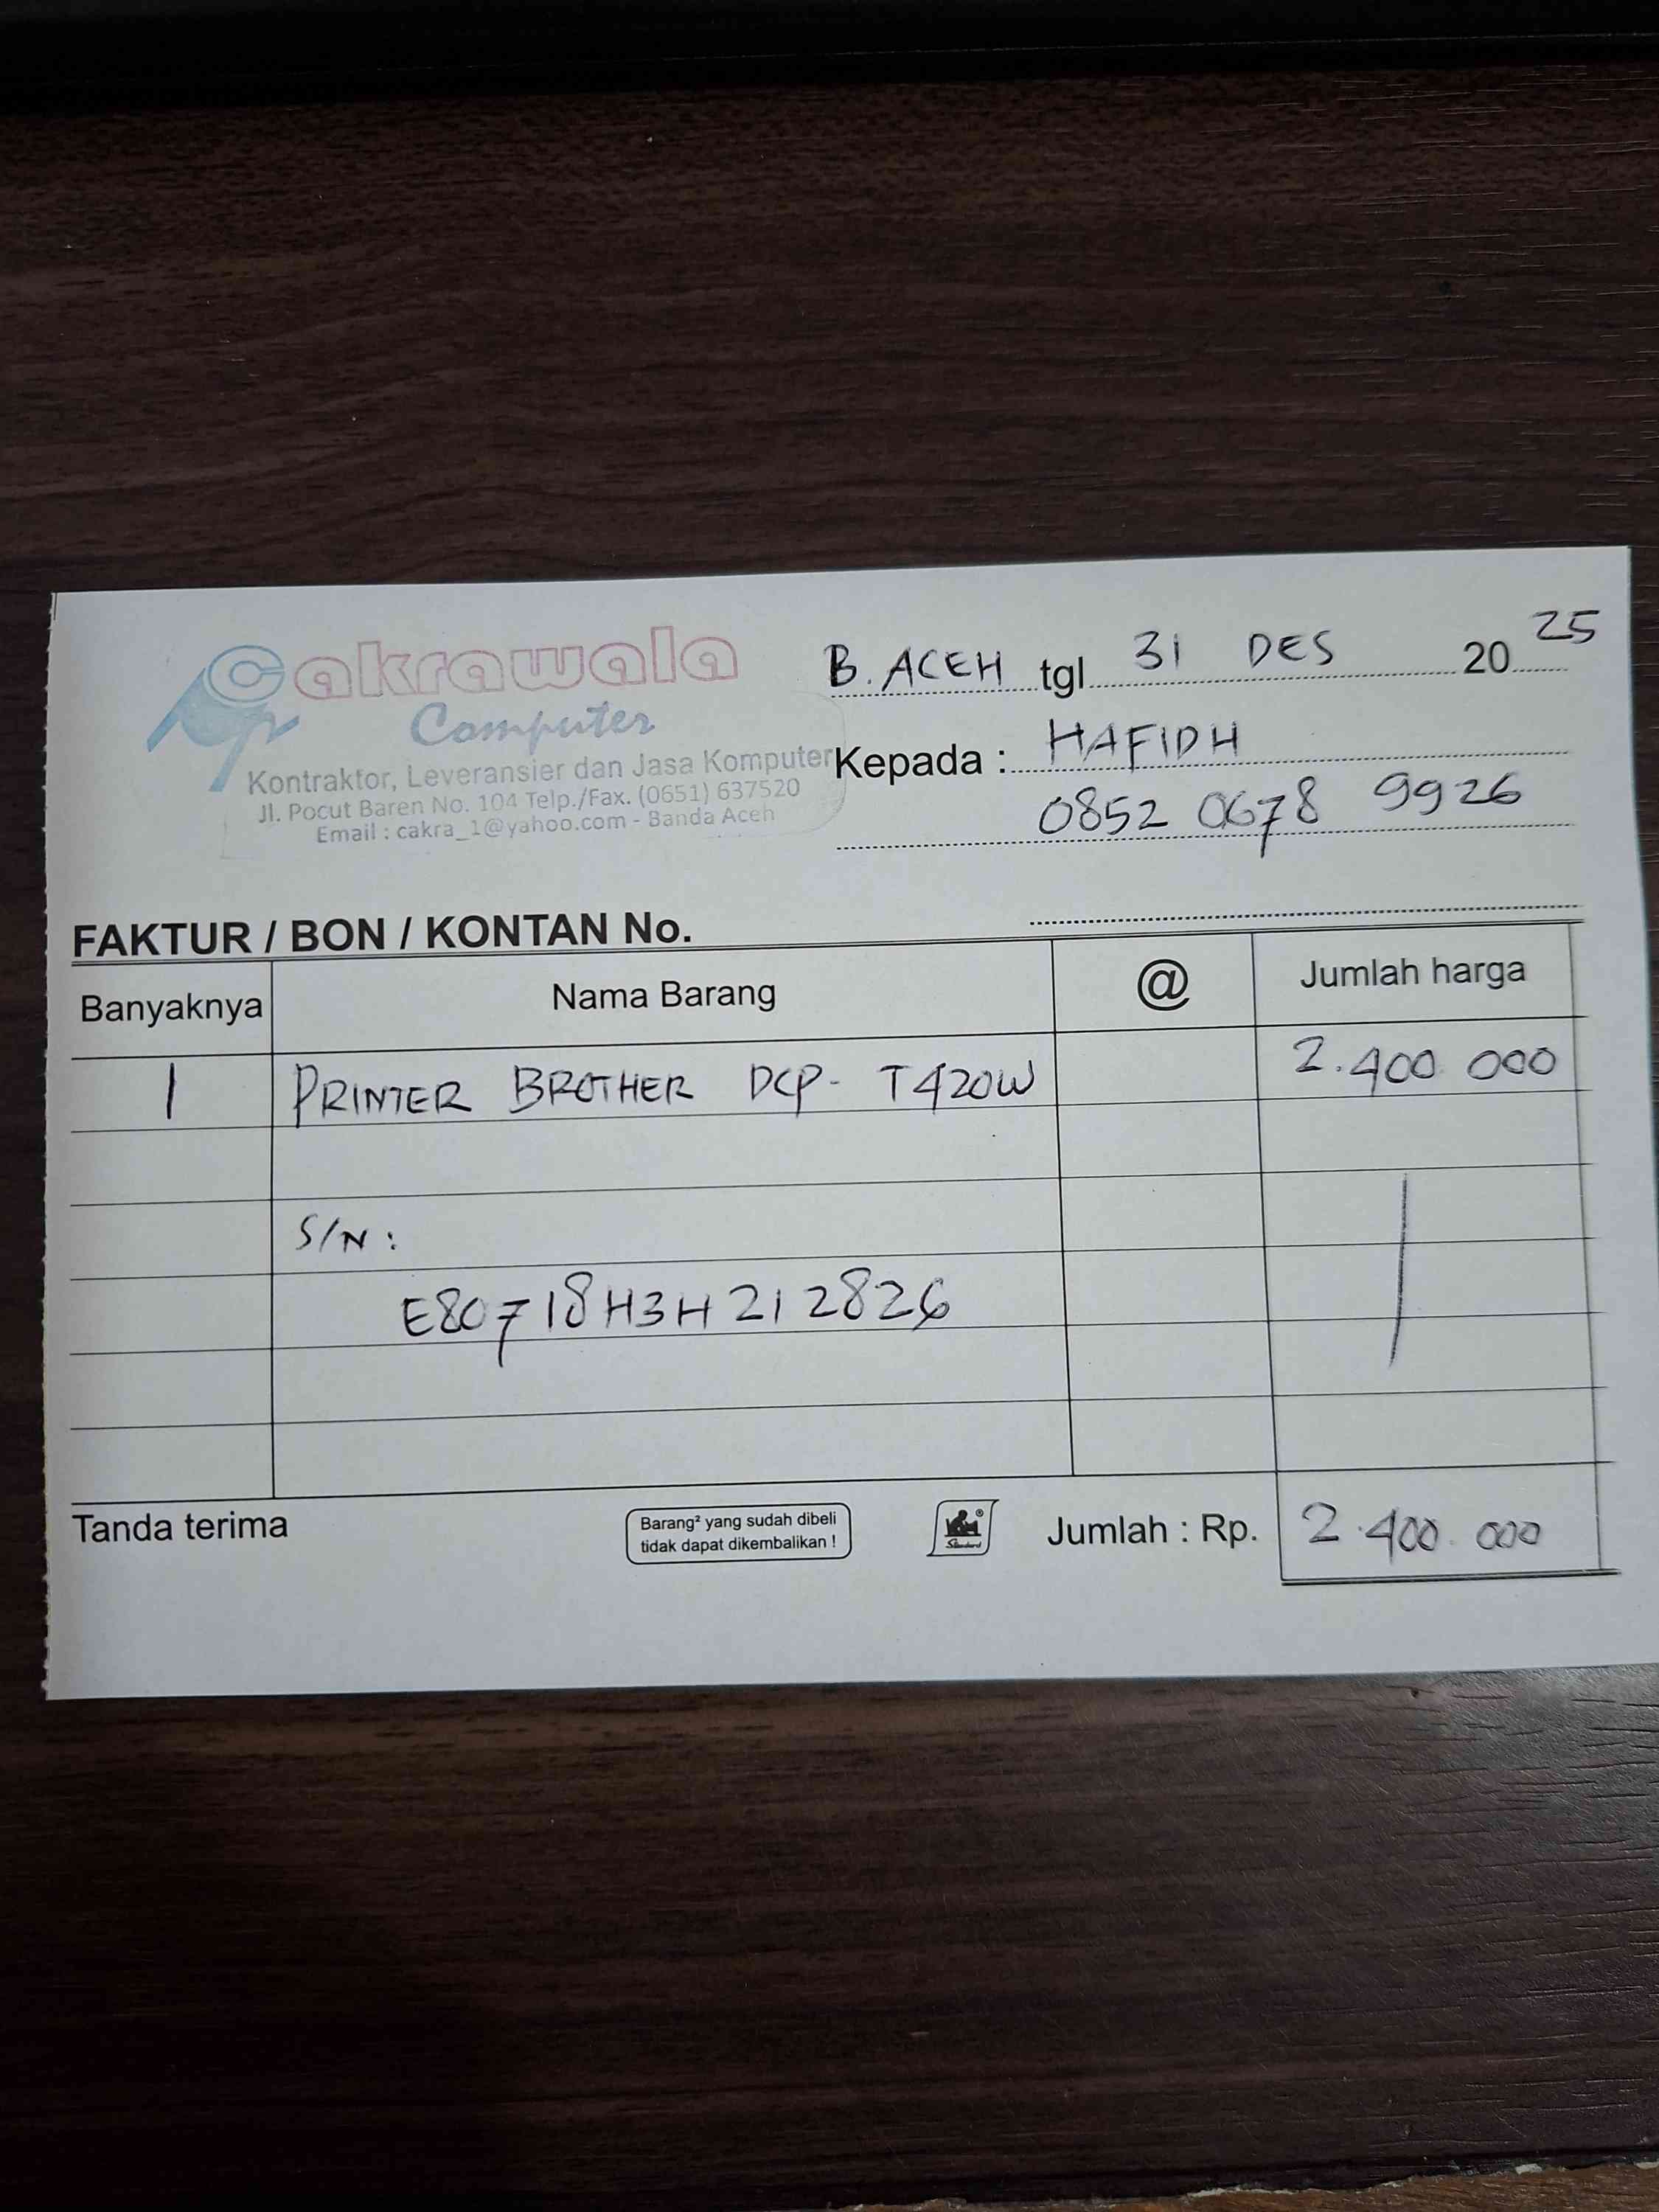 Cakrawala
Computer
Kontraktor, Leveransier dan Jasa Komputer
Jl. Pocut Baren No. 104 Telp./Fax. (0651) 637520
Email : cakra_1@yahoo.com - Banda Aceh
B. ACEH tgl 31 DES 20 25
Kepada : HAFIDH
0852 0678 9926
FAKTUR / BON / KONTAN No.
Banyaknya Nama Barang @ Jumlah harga
1 PRINTER BROTHER DCP- T420W 2.400 000
S/N :
E80718H3H212826
Tanda terima
Barang² yang sudah dibeli
tidak dapat dikembalikan !
Standard
Jumlah : Rp. 2.400.000